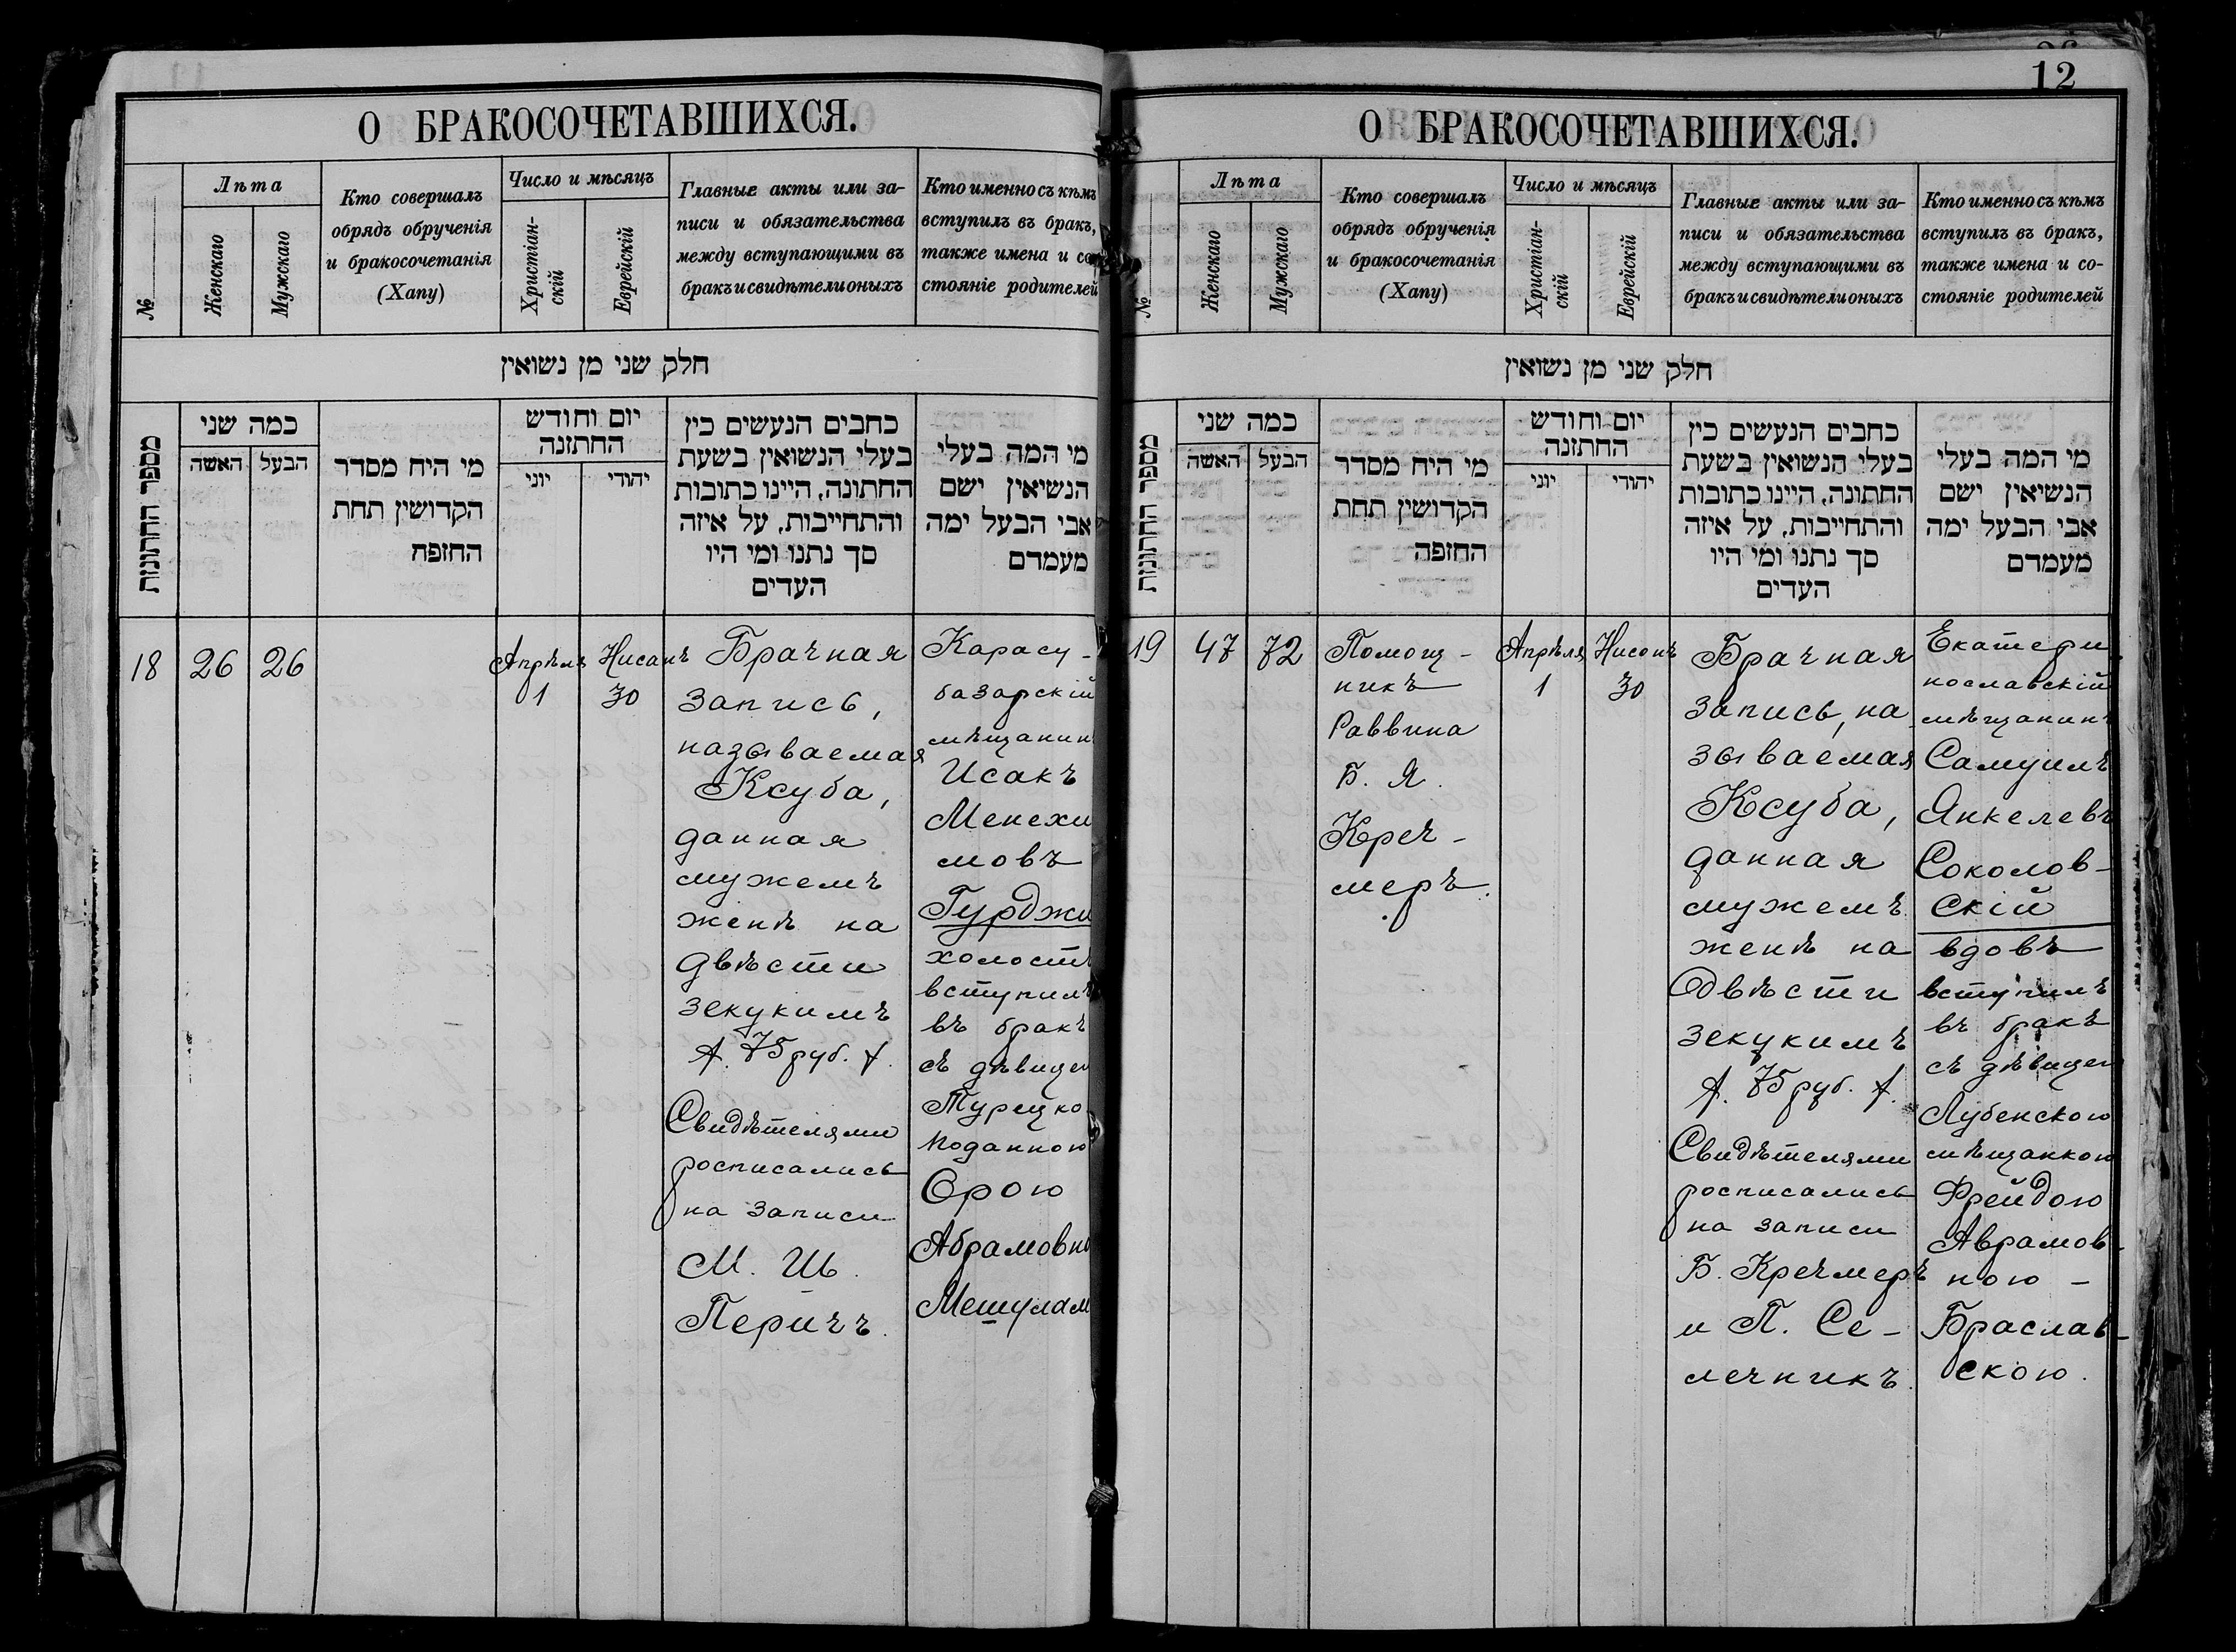 О БРАКОСОЧЕТАВШИХСЯ.
№
Лѣта
Женскаго
Мужскаго
Кто совершалъ
обрядъ обрученія
и бракосочетанія
(Хапу)
Число и мѣсяцъ
Христіан-
скій
Еврейскій
Главные акты или за-
писи и обязательства
между вступающими въ
бракъ и свидѣтели оныхъ
Кто именно съ кѣмъ
вступилъ въ бракъ,
также имена и со
стояніе родителей
חלק שני מן נשואין
מספר החתונות
כמה שני
האשה
הבעל
מי היח מסדר
הקדושין תחת
החזפח
יום וחודש
החתזנה
יוני
יהודי
כחבים הנעשים כין
בעלי הנשואין בשעת
החתונה, היינו כתובות
והתחייבות, על איזה
סך נתנו ומי היו
העדים
מי המה בעלי
הנשיאין ישם
אבי הבעל ימה
מעמדם
18
26
26
Апрѣля
1
Нисанъ
30
Брачная
запись,
называемая
Ксуба,
данная
мужемъ
женѣ на
двѣсти
зекукимъ
75 руб.
Свидѣтелями
росписались
на записи
М. Ш.
Перичъ.
Карасу-
базарскій
мѣщанинъ
Исакъ
Менехи
мовъ
Гурджи
холостъ
вступилъ
въ бракъ
съ дѣвицею
Турецко
поданною
Орою
Абрамовно
Мешулам
12
О БРАКОСОЧЕТАВШИХСЯ.
№
Лѣта
Женскаго
Мужскаго
Кто совершалъ
обрядъ обрученія
и бракосочетанія
(Хапу)
Число и мѣсяцъ
Христіан-
скій
Еврейскій
Главные акты или за-
писи и обязательства
между вступающими въ
бракъ и свидѣтели оныхъ
Кто именно съ кѣмъ
вступилъ въ бракъ,
также имена и со-
стояніе родителей
חלק שני מן נשואין
מספר החתונות
כמה שני
האשה
הבעל
מי היח מסדר
הקדושין תחת
החזפה
יום וחודש
החתזנה
יוני
יהודי
כחבים הנעשים כין
בעלי הנשואין בשעת
החתונה, היינו כתובות
והתחייבות, על איזה
סך נתנו ומי היו
העדים
מי המה בעלי
הנשיאין ישם
אבי הבעל ימה
מעמדם
19
47
72
Помощ-
никъ
Раввина
Б. Я.
Креч-
меръ.
Апрѣля
1
Нисонъ
30
Брачная
запись, на
зываемая
Ксуба,
данная
мужемъ
женѣ на
двѣсти
зекукимъ
75 руб.
Свидѣтелями
росписались
на записи
Б. Кречмеръ
и П. Се-
лечникъ.
Екатери
нославскій
мѣщанинъ
Самуилъ
Янкелевъ
Соколов-
скій
вдовъ
вступилъ
въ бракъ
съ дѣвицею
Лубенскою
мѣщанкою
Фрейдою
Аврамов-
ною -
Браслав-
скою.